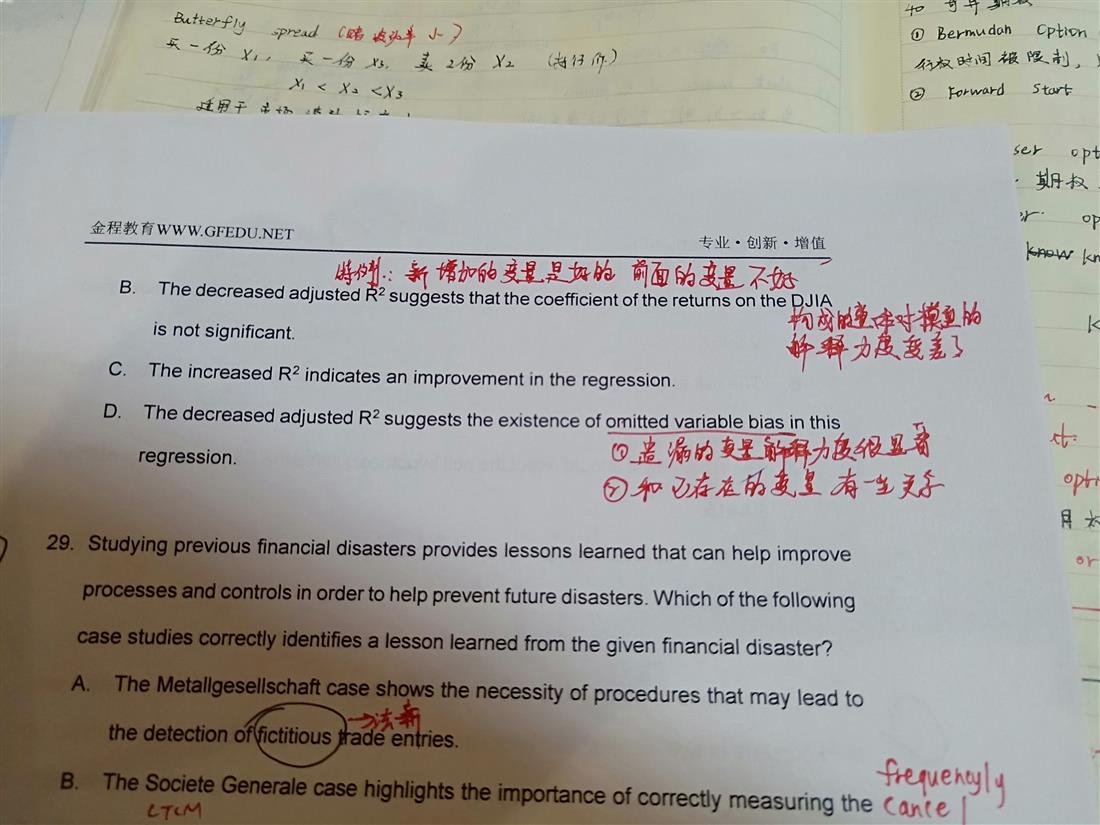 Butterfly spread (赌波动率小)
买一份 X1, 买一份 X3, 卖2份 X2 (执行价)
X1 < X2 < X3
适用于市场
① Bermudan Option
行权时间被限制,
② Forward Start
ser opt
期权
r. op
know kn
k
ct.
opti
or
金程教育WWW.GFEDU.NET
专业·创新·增值
特例: 新增加的变量是好的 前面的变量不好
B. The decreased adjusted R² suggests that the coefficient of the returns on the DJIA
is not significant.
构成的整体对模型的
解释力度变差了
C. The increased R² indicates an improvement in the regression.
D. The decreased adjusted R² suggests the existence of omitted variable bias in this
regression.
① 遗漏的变量解释力度很显著
② 和已存在的变量有一定关系
29. Studying previous financial disasters provides lessons learned that can help improve
processes and controls in order to help prevent future disasters. Which of the following
case studies correctly identifies a lesson learned from the given financial disaster?
A. The Metallgesellschaft case shows the necessity of procedures that may lead to
the detection of fictitious trade entries.
→法新
B. The Societe Generale case highlights the importance of correctly measuring the
LTCM
frequencyly
cancel